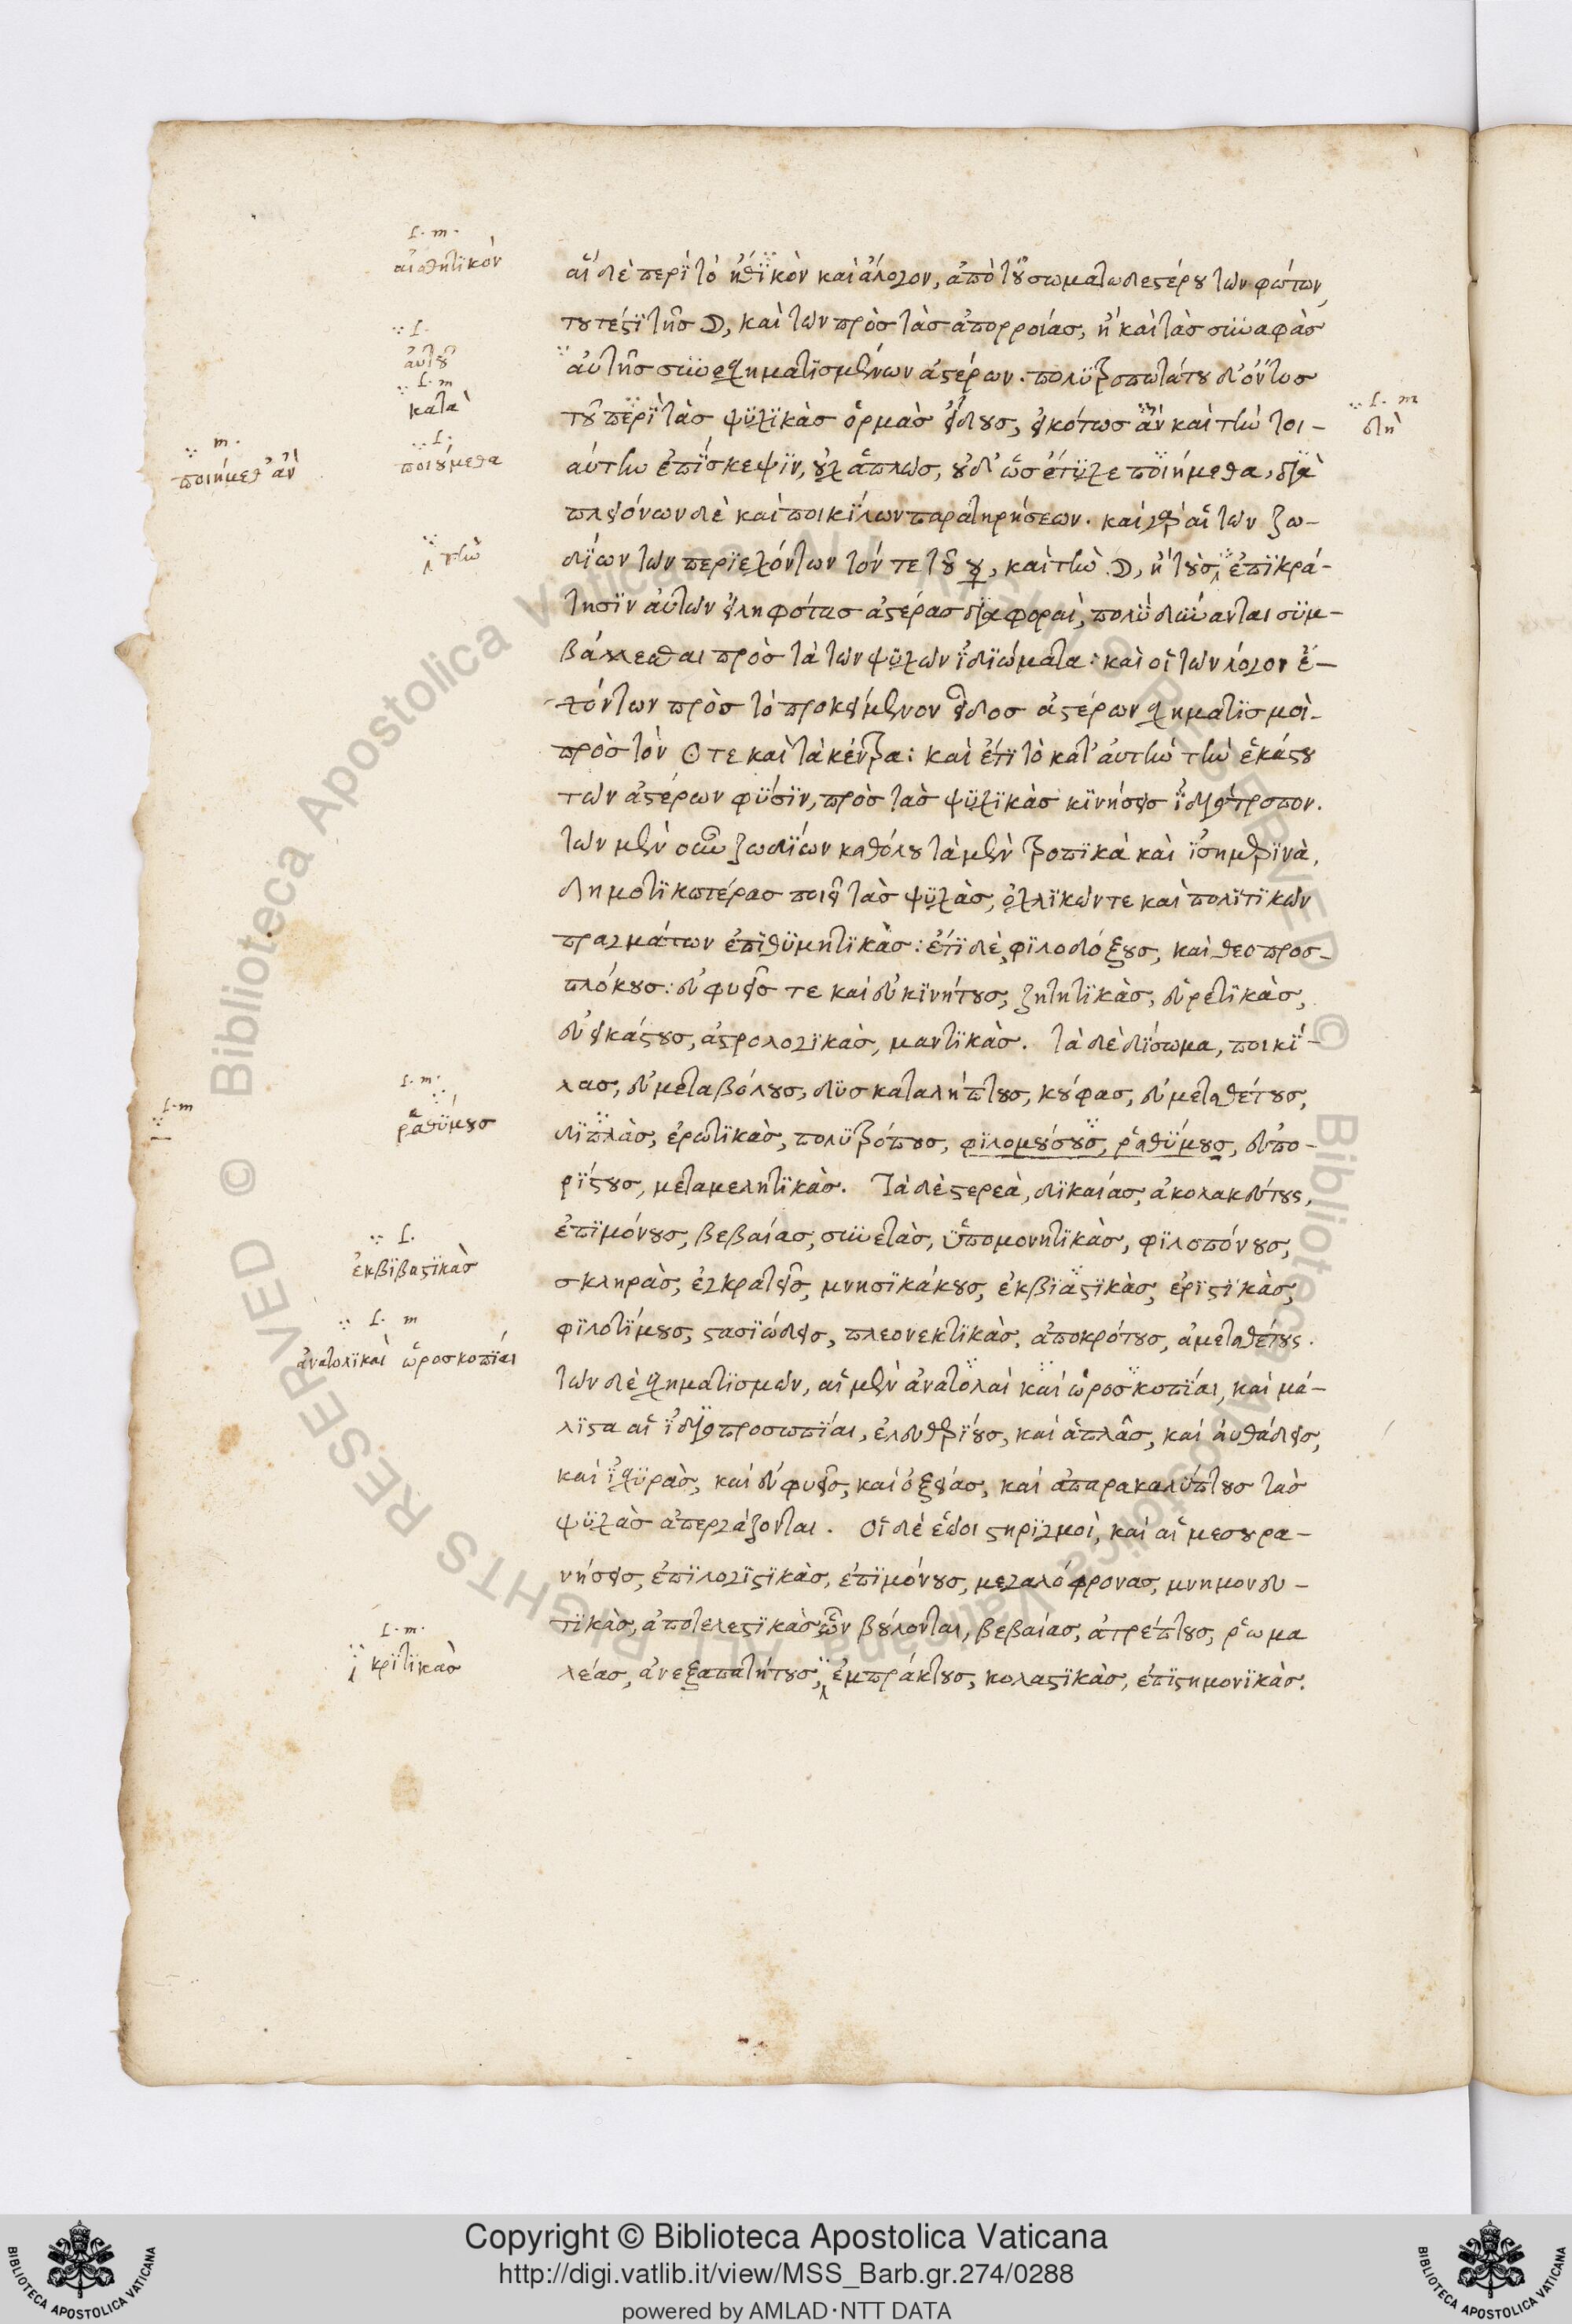 αἵ δὲ περὶ τὸ ἠθικὸν καὶ ἄλογον, ἀπὸ τοῦ σωματωδεστέρου τῶν φώτων,
τουτέστι τῆς ☽, καὶ τῶν πρὸς τὰς ἀπορροίας, ἢ καὶ τὰς συναφὰς
αὐτῆς συνεσχηματισμένων ἀστέρων. πολυτροπωτάτου δ' ὄντος
τοῦ περὶ τὰς ψυχικὰς ὁρμὰς εἴδους, εἰκότως ἂν καὶ τὴν τοι-
αύτην ἐπίσκεψιν, οὐχ ἁπλῶς, οὐδ' ὡς ἔτυχε ποιήμεθα, διὰ
πλειόνων δὲ καὶ ποικίλων παρατηρήσεων. καὶ γὰρ αἱ τῶν ζω-
δίων τῶν περιεχόντων τόν τε τοῦ ☿, καὶ τὴν ☽, ἢ τοὺς ἐπικρά-
τησιν αὐτῶν εἰληφότας ἀστέρας διαφοραὶ, πολὺ δύνανται συμ-
βάλλεσθαι πρὸς τὰ τῶν ψυχῶν ἰδιώματα: καὶ οἱ τῶν λόγον ἐ-
χόντων πρὸς τὸ προκείμενον εἶδος ἀστέρων σχηματισμοὶ
πρὸς τὸν ☉ τε καὶ τὰ κέντρα: καὶ ἔτι τὸ κατ' αὐτὴν τὴν ἑκάστου
τῶν ἀστέρων φύσιν, πρὸς τὰς ψυχικὰς κινήσεις ἰδιότροπον.
τῶν μὲν οὖν ζωδίων καθόλου τὰ μὲν τροπικὰ καὶ ἰσημερινὰ,
δημοτικωτέρας ποιεῖ τὰς ψυχὰς, ὀχλικῶν τε καὶ πολιτικῶν
πραγμάτων ἐπιθυμητικὰς: ἔτι δὲ, φιλοδόξους, καὶ θεοπροσ-
πλόκους: εὐφυεῖς τε καὶ εὐκινήτους, ζητητικὰς, εὑρετικὰς,
εὐεικάστους, ἀστρολογικὰς, μαντικὰς. τὰ δὲ δίσωμα, ποικί-
λας, εὐμεταβόλους, δυσκαταλήπτους, κούφας, εὐμεταθέτους,
διπλὰς, ἐρωτικὰς, πολυτρόπους, φιλομούσους, ῥαθύμους, εὐπο-
ρίστους, μεταμελητικὰς. Τὰ δὲ στερεὰ, δικαίας, ἀκολακεύτους,
ἐπιμόνους, βεβαίας, συνετὰς, ὑπομονητικὰς, φιλοπόνους,
σκληρὰς, ἐγκρατεῖς, μνησικάκους, ἐκβιαστικὰς, ἐριστικὰς,
φιλοτίμους, στασιώδεις, πλεονεκτικὰς, ἀποκρότους, ἀμεταθέτους.
τῶν δὲ σχηματισμῶν, αἱ μὲν ἀνατολαὶ καὶ ὡροσκοπίαι, καὶ μά-
λιστα αἱ ἰδιοπροσωπίαι, ἐλευθερίους, καὶ ἁπλᾶς, καὶ αὐθάδεις,
καὶ ἰσχυρὰς, καὶ εὐφυεῖς, καὶ ὀξείας, καὶ ἀπαρακαλύπτους τὰς
ψυχὰς ἀπεργάζονται. οἱ δὲ ἑῶοι στηριγμοὶ, καὶ αἱ μεσουρα-
νήσεις, ἐπιλογιστικὰς, ἐπιμόνους, μεγαλόφρονας, μνημονευ-
τικὰς, ἀποτελεστικὰς ὧν βούλονται, βεβαίας, ἀτρέπτους, ῥωμα
λέας, ἀνεξαπατήτους, ἐμπράκτους, κολαστικὰς, ἐπιστημονικὰς.
L. m.
αἰσθητικὸν
L.
αὐτοῦ
L. m
κατὰ
L. m
δὴ
m.
ποιήμεθ' ἂν
L.
ποιούμεθα
τὴν
L. m.
ῥαθύμους
L. m
L.
ἐκβιβαστικὰς
L. m
ἀνατολικαὶ ὡροσκοπίαι
L. m.
κριτικὰς
© Biblioteca Apostolica Vaticana ALL RIGHTS RESERVED
© Biblioteca Apostolica Vaticana ALL RIGHTS RESERVED
Copyright © Biblioteca Apostolica Vaticana
http://digi.vatlib.it/view/MSS_Barb.gr.274/0288
powered by AMLAD·NTT DATA
BIBLIOTECA APOSTOLICA VATICANA
BIBLIOTECA APOSTOLICA VATICANA